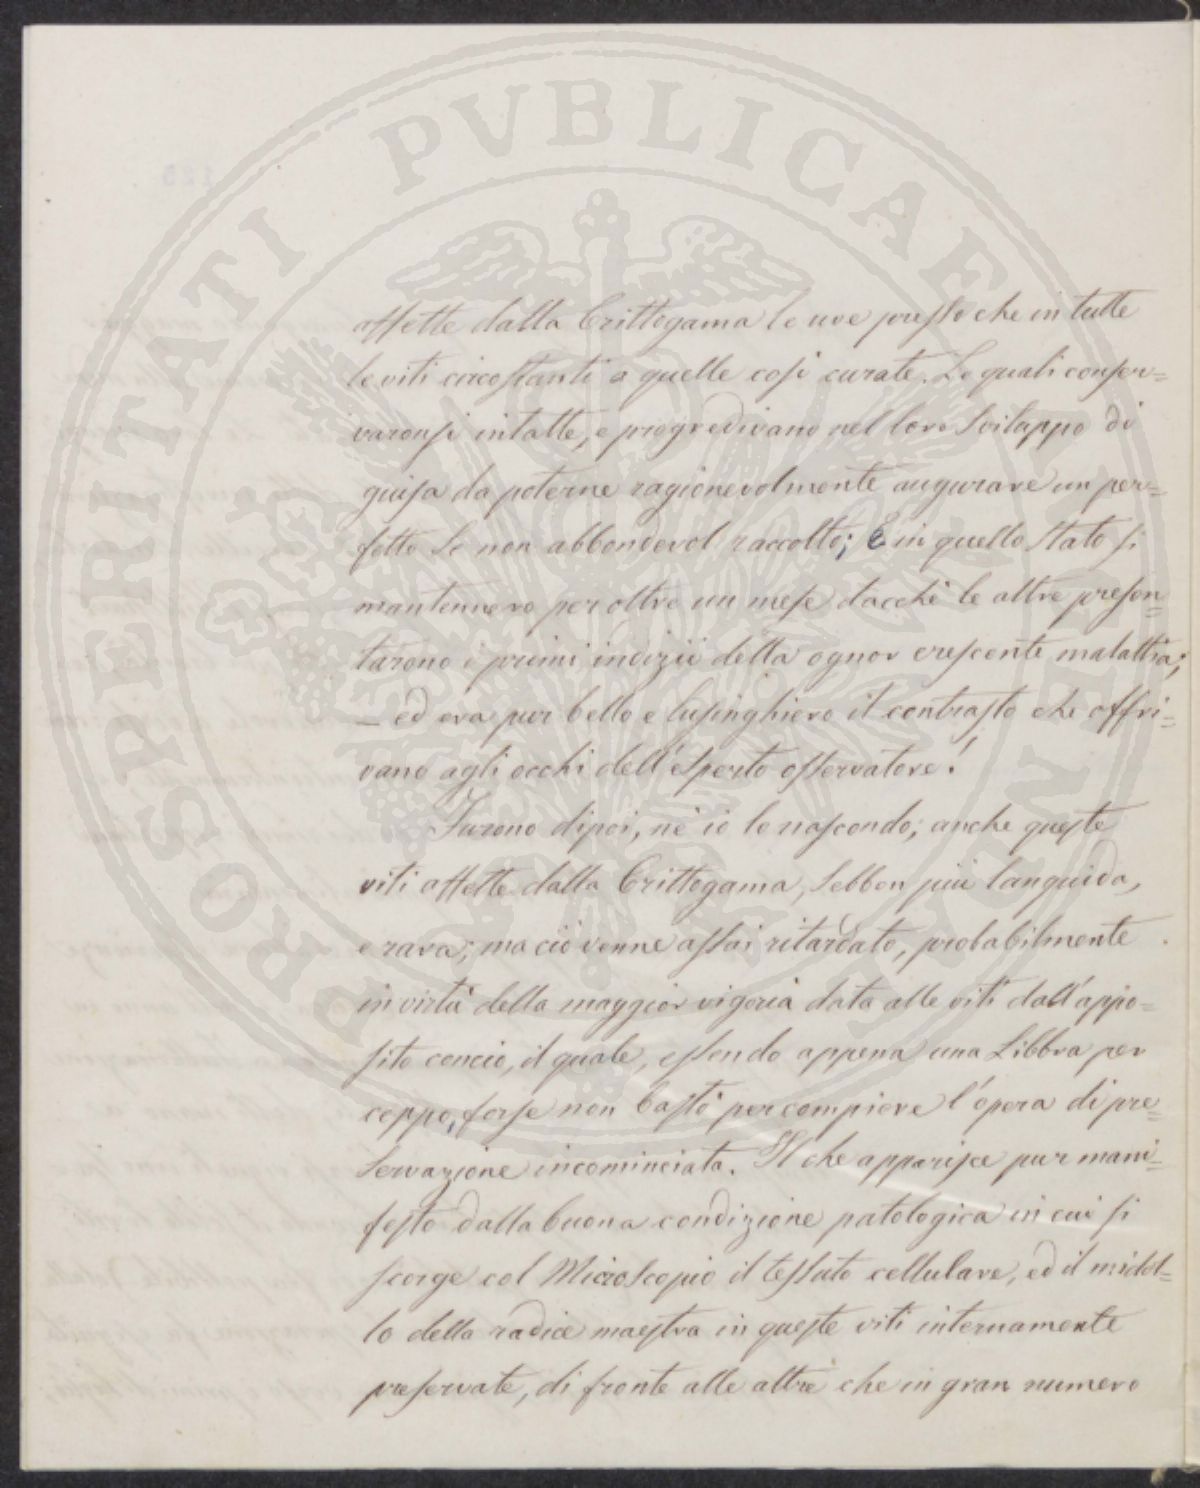 PROSPERITATI PVBLICAE AVGENDAE
affette dalla Crittogama le uve presso che in tutte
le viti circostanti a quelle così curate. Le quali conser=
varonsi intatte, e progredivano nel loro sviluppo di
guisa da poterne ragionevolmente augurare un per=
fetto se non abbondevol raccolto; E in quello stato si
mantennero per oltre un mese dacchè le altre presen=
tarono i primi indizii della ognor crescente malattia;
– ed era pur bello e lusinghiero il contrasto che offri=
vano agli occhi dell'esperto osservatore!
Furono dipoi, nè io lo nascondo; anche queste
viti affette dalla Crittogama, sebben più languida,
e rara; ma ciò venne assai ritardato, probabilmente
in virtù della maggior vigoria data alle viti dall'appo=
sito concio, il quale, essendo appena una Libbra per
ceppo, forse non bastò per compiere l'opera di pre=
servazione incominciata. Il che apparisce pur mani=
festo dalla buona condizione patologica in cui si
scorge col Microscopio il tessuto cellulare, ed il midol=
lo della radice maestra in queste viti internamente
preservate, di fronte alle altre che in gran numero